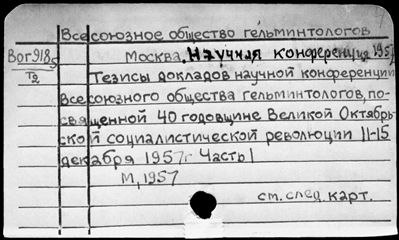 Всесоюзное общество гельминтологов
Вог9185 Москва, Научная конференция 1957
Т2 Тезисы докладов научной конференции
Всесоюзного общества гельминтологов, по-
священной 40 годовщине Великой Октябрь-
ской социалистической революции 11-15
декабря 1957г Часть I
М, 1957
см. след карт.